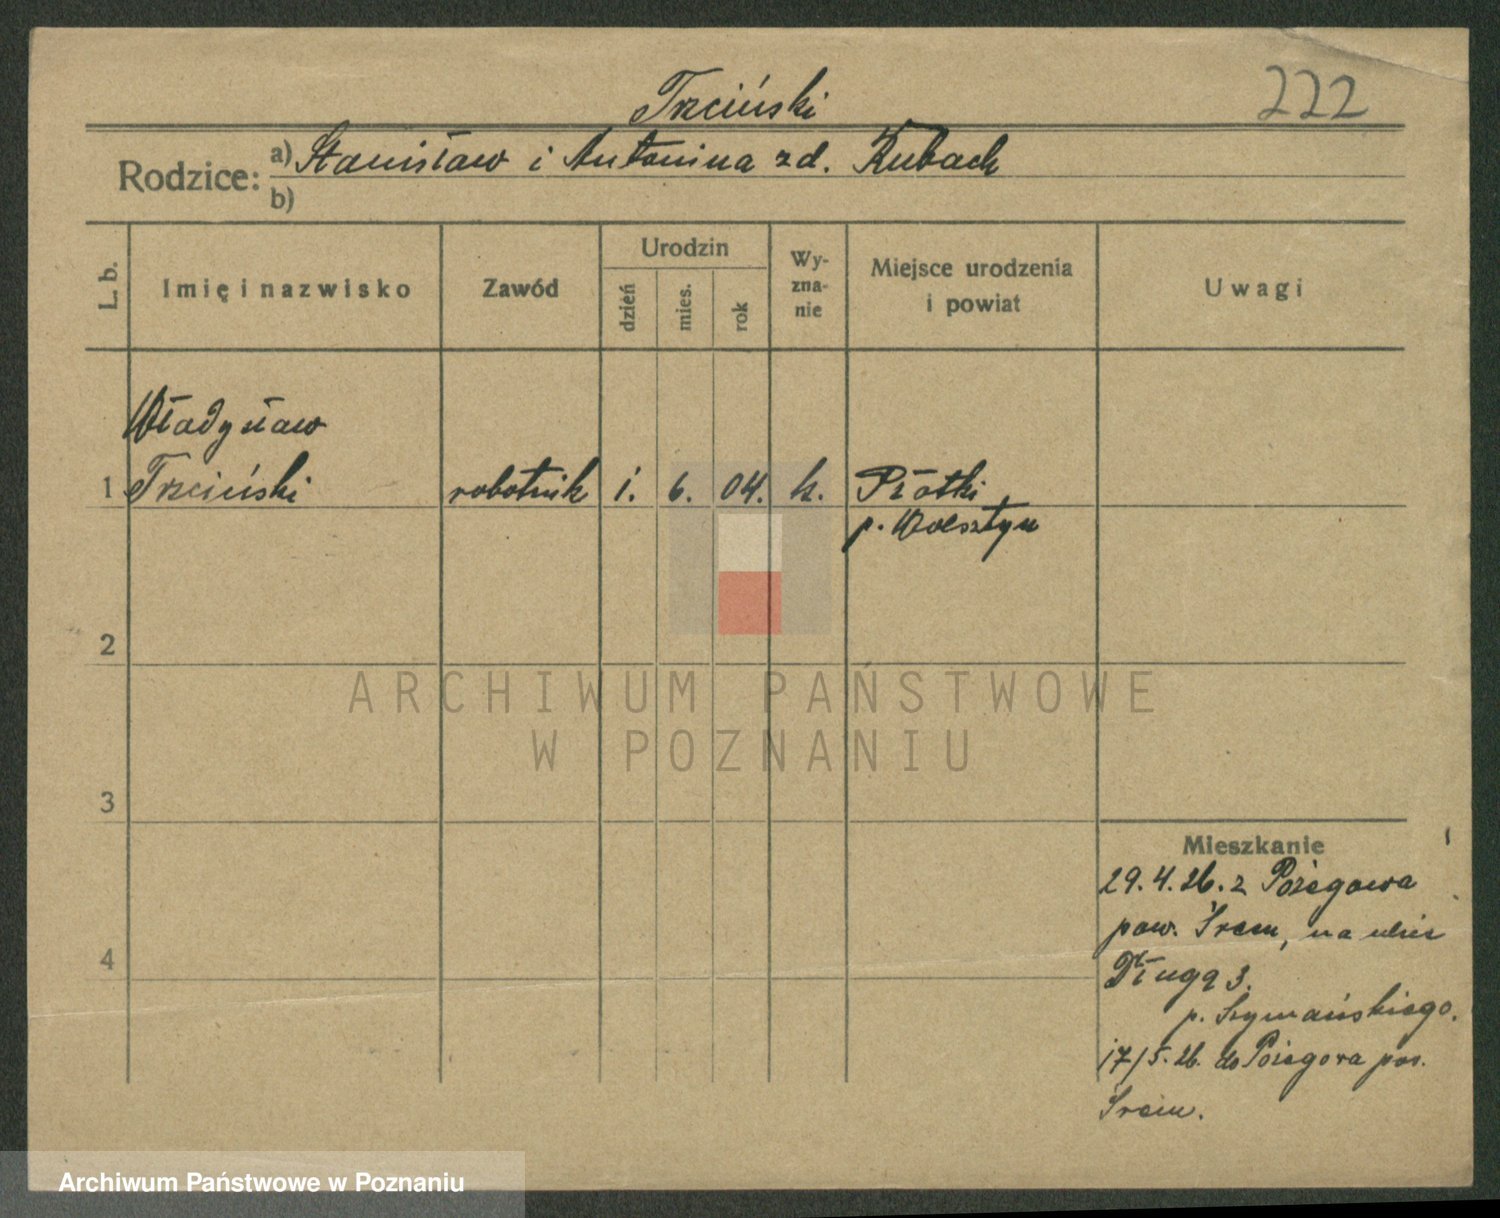 222
Trzciński
Rodzice: a) Stanisław i Antonina zd. Kubach
b)
L. b. Imię i nazwisko Zawód Urodzin dzień mies. rok Wy-zna-nie Miejsce urodzenia i powiat Uwagi
Władysław
1 Trzciński robotnik 1. 6. 04. k. Płotki
p. Wolsztyn
2
ARCHIWUM PAŃSTWOWE
W POZNANIU
3
Mieszkanie
29.4.26. z Pożegowa
pow. Śrem, na ulicę
4
Długą 3.
p. Szymańskiego.
17/5.26. do Pożegowa pow.
Śrem.
Archiwum Państwowe w Poznaniu